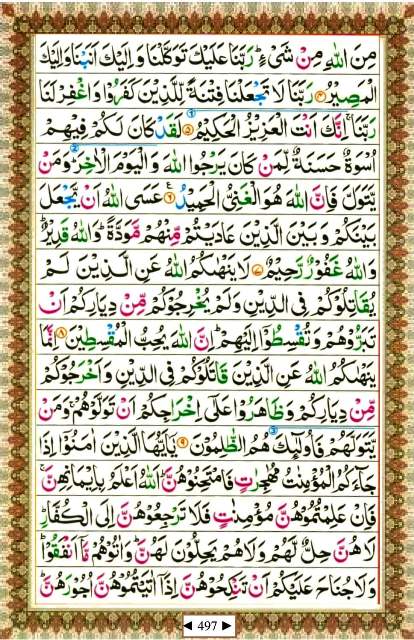 مِنَ اللّٰهِ مِنْ شَىْءٍ ؕ رَبَّنَا عَلَيْكَ تَوَكَّلْنَا وَ اِلَيْكَ اَنَبْنَا وَاِلَيْكَ
الْمَصِيْرُ ۝۴ رَبَّنَا لَا تَجْعَلْنَا فِتْنَةً لِّلَّذِيْنَ كَفَرُوْا وَاغْفِرْ لَنَا
رَبَّنَا ۚ اِنَّكَ اَنْتَ الْعَزِيْزُ الْحَكِيْمُ ۝۵ لَقَدْ كَانَ لَكُمْ فِيْهِمْ
اُسْوَةٌ حَسَنَةٌ لِّمَنْ كَانَ يَرْجُوا اللّٰهَ وَ الْيَوْمَ الْاٰخِرَ ؕ وَمَنْ
يَّتَوَلَّ فَاِنَّ اللّٰهَ هُوَ الْغَنِىُّ الْحَمِيْدُ ۝۶ عَسَى اللّٰهُ اَنْ يَّجْعَلَ
بَيْنَكُمْ وَ بَيْنَ الَّذِيْنَ عَادَيْتُمْ مِّنْهُمْ مَّوَدَّةً ؕ وَاللّٰهُ قَدِيْرٌ ؕ
وَاللّٰهُ غَفُوْرٌ رَّحِيْمٌ ۝۷ لَا يَنْهٰىكُمُ اللّٰهُ عَنِ الَّذِيْنَ لَمْ
يُقَاتِلُوْكُمْ فِى الدِّيْنِ وَلَمْ يُخْرِجُوْكُمْ مِّنْ دِيَارِكُمْ اَنْ
تَبَرُّوْهُمْ وَ تُقْسِطُوْۤا اِلَيْهِمْ ؕ اِنَّ اللّٰهَ يُحِبُّ الْمُقْسِطِيْنَ ۝۸ اِنَّمَا
يَنْهٰىكُمُ اللّٰهُ عَنِ الَّذِيْنَ قَاتَلُوْكُمْ فِى الدِّيْنِ وَ اَخْرَجُوْكُمْ
مِّنْ دِيَارِكُمْ وَ ظَاهَرُوْا عَلٰۤى اِخْرَاجِكُمْ اَنْ تَوَلَّوْهُمْ ۚ وَمَنْ
يَّتَوَلَّهُمْ فَاُولٰٓئِكَ هُمُ الظّٰلِمُوْنَ ۝۹ يٰۤاَيُّهَا الَّذِيْنَ اٰمَنُوْۤا اِذَا
جَآءَكُمُ الْمُؤْمِنٰتُ مُهٰجِرٰتٍ فَامْتَحِنُوْهُنَّ ؕ اَللّٰهُ اَعْلَمُ بِاِيْمَانِهِنَّ ۚ
فَاِنْ عَلِمْتُمُوْهُنَّ مُؤْمِنٰتٍ فَلَا تَرْجِعُوْهُنَّ اِلَى الْكُفَّارِ ؕ
لَا هُنَّ حِلٌّ لَّهُمْ وَلَا هُمْ يَحِلُّوْنَ لَهُنَّ ؕ وَ اٰتُوْهُمْ مَّاۤ اَنْفَقُوْا ؕ
وَ لَا جُنَاحَ عَلَيْكُمْ اَنْ تَنْكِحُوْهُنَّ اِذَاۤ اٰتَيْتُمُوْهُنَّ اُجُوْرَهُنَّ ؕ
◄ 497 ►